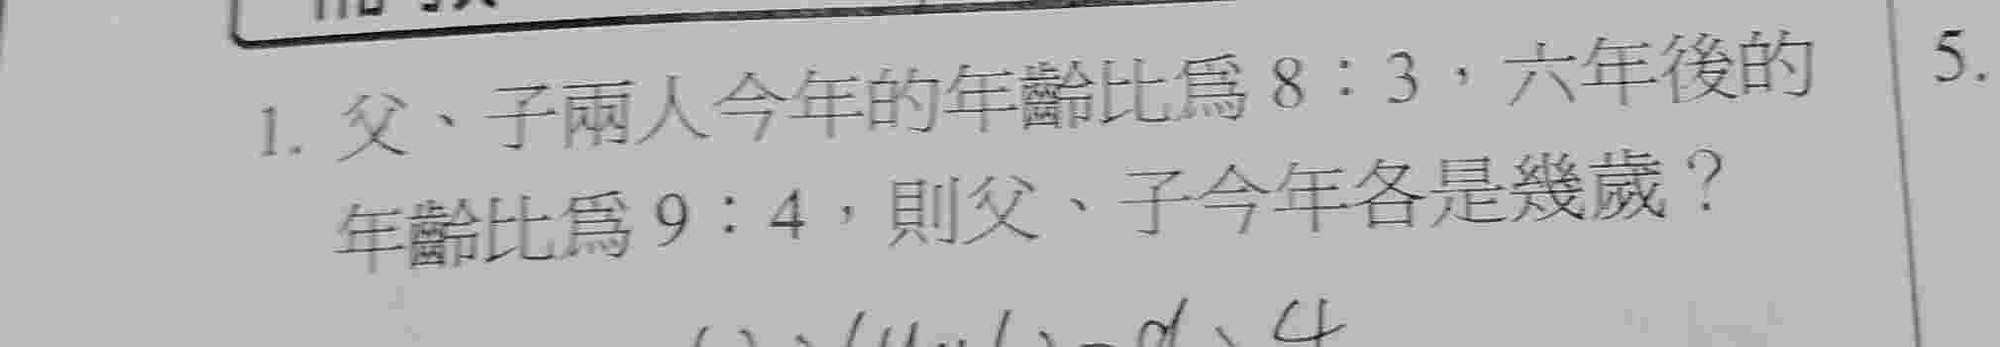 1. 父、子兩人今年的年齡比為 8：3，六年後的
年齡比為 9：4，則父、子今年各是幾歲？
5.